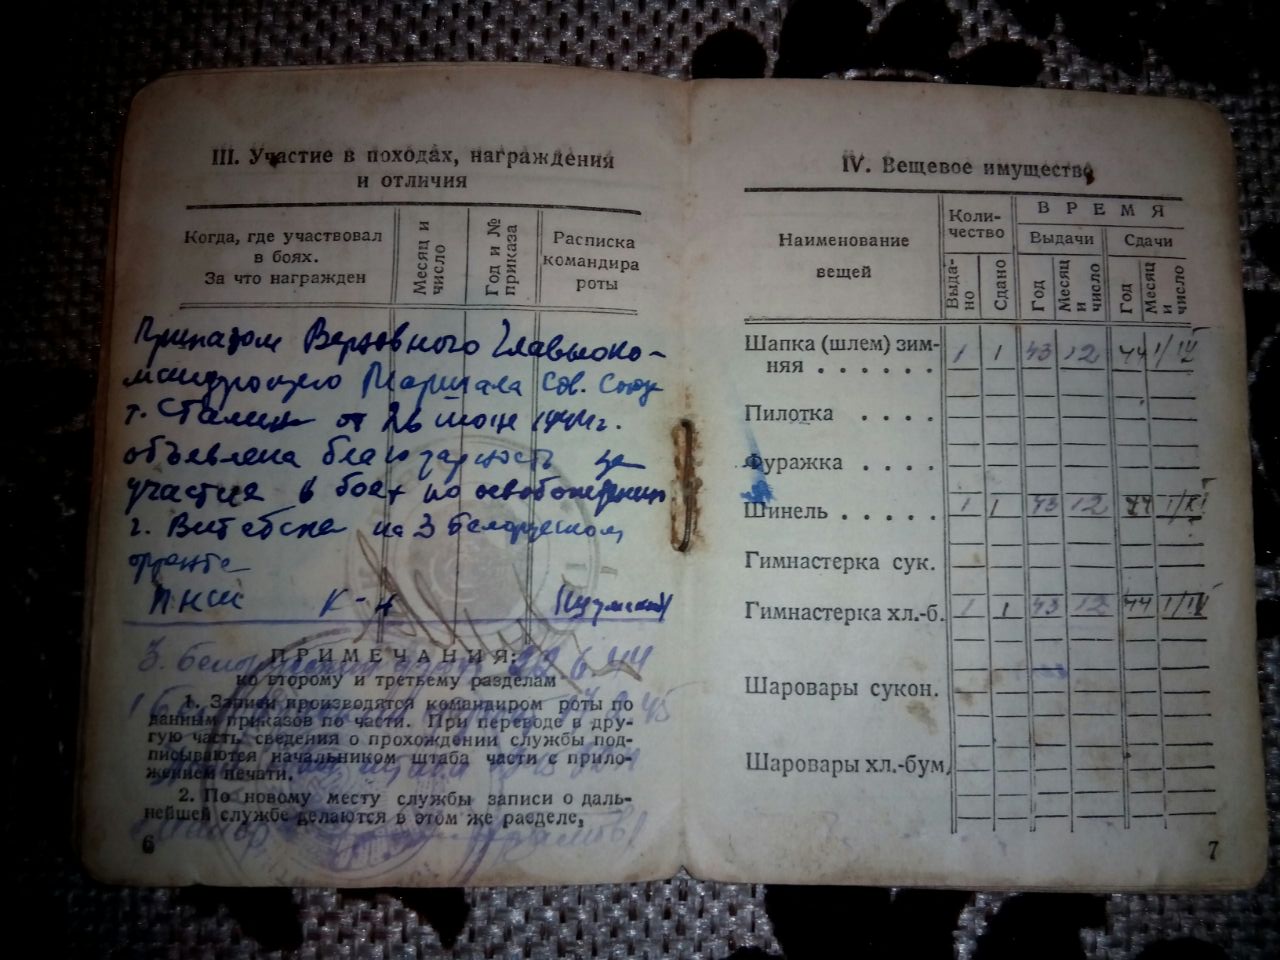 III. Участие в походах, награждения
и отличия
Когда, где участвовал
в боях.
За что награжден
Месяц и
число
Год и №
приказа
Расписка
командира
роты
Приказом Верховного Главноко-
мандующего Маршала Сов. Союза
т. Сталина от 26 июня 1944 г.
объявлена благодарность за
участие в боях по освобождению
г. Витебска на 3 Белорусском
фронте
ПНШ к-н
3. Белорусский 26 6 44
ПРИМЕЧАНИЯ:
ко второму и третьему разделам
1. Записи производятся командиром роты по
данным приказов по части. При переводе в дру-
гую часть сведения о прохождении службы под-
писываются начальником штаба части с прило-
жением печати.
2. По новому месту службы записи о даль-
нейшей службе делаются в этом же разделе,
Майор
6
IV. Вещевое имущество
Наименование
вещей
Коли-
чество
ВРЕМЯ
Выдачи
Сдачи
Выда-
но
Сдано
Год
Месяц
и
число
Год
Месяц
и
число
Шапка (шлем) зим-
няя . . . . . . 1 1 43 12 44 1/IV
Пилотка . . . .
Фуражка . . . .
Шинель . . . . . 1 1 43 12 44
Гимнастерка сук.
Гимнастерка хл.-б. 1 1 43 12 44
Шаровары сукон.
Шаровары хл.-бум.
7